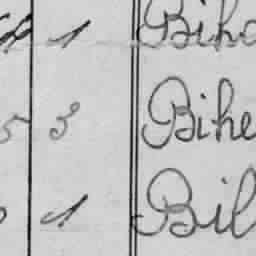 1 Biha
5 3 Bihe
1 Bil